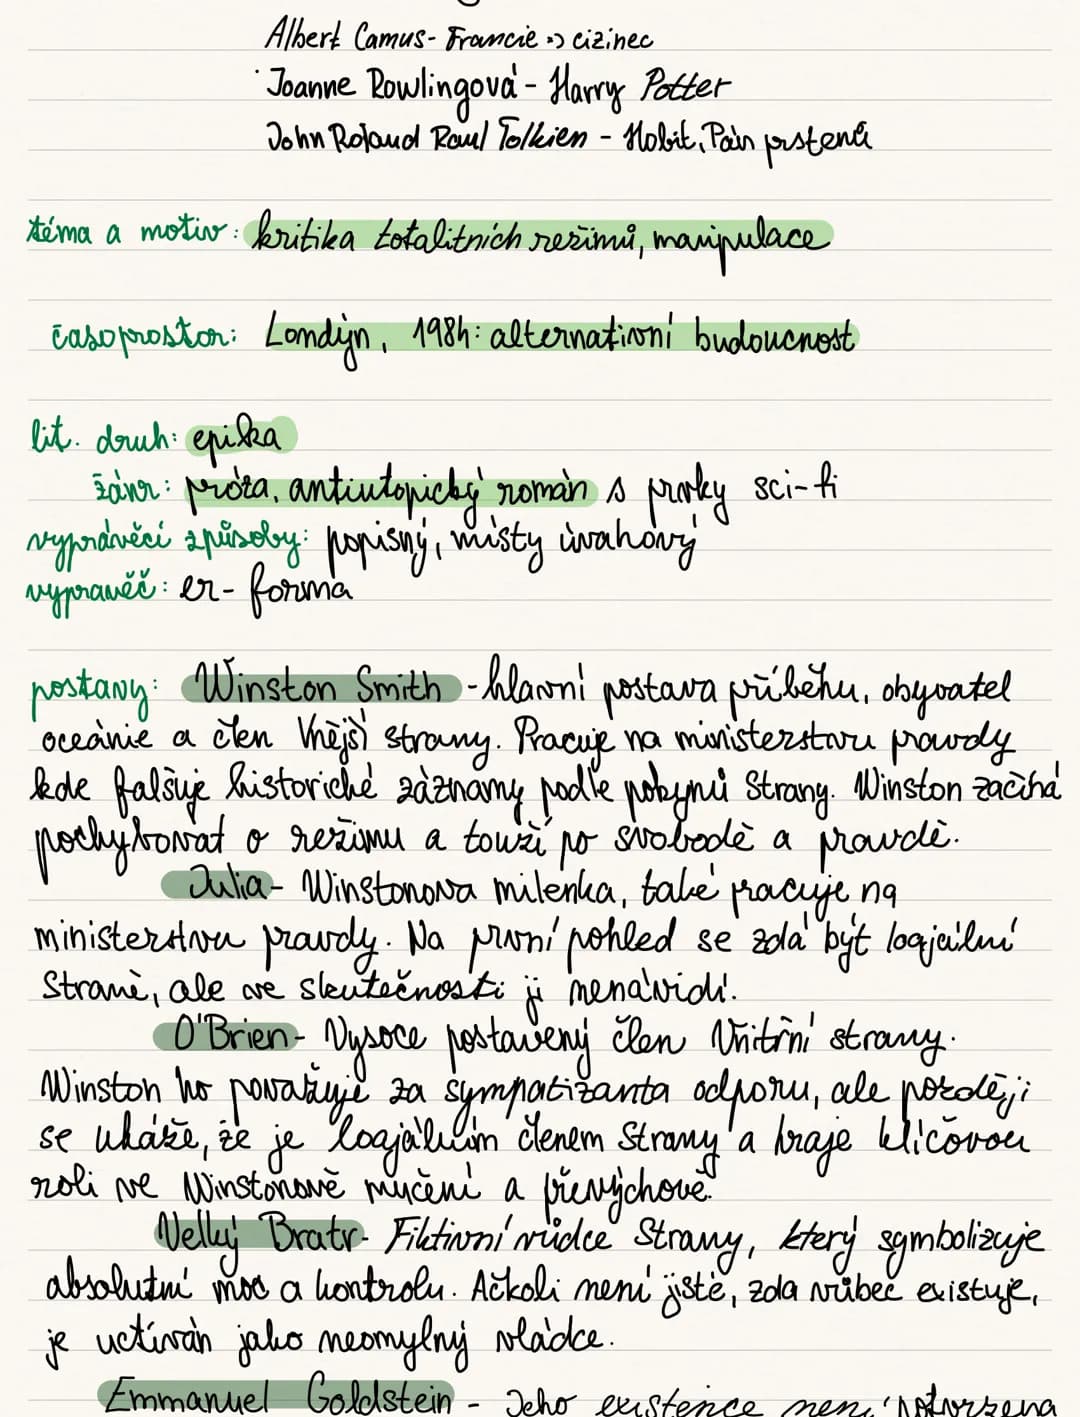 Albert Camus - Francie => cizinec
Joanne Rowlingová - Harry Potter
John Roland Raul Tolkien - Hobit, Pán prstenů
téma a motiv: kritika totalitních režimů, manipulace
časoprostor: Londýn, 1984: alternativní budoucnost
lit. druh: epika
žánr: próza, antiutopický román s prvky sci-fi
vyprávěcí způsoby: popisný, místy úvahový
vypravěč: er-forma
postavy: Winston Smith - hlavní postava příběhu, obyvatel
oceánie a člen Vnější strany. Pracuje na ministerstvu pravdy
kde falšuje historické záznamy podle pokynů Strany. Winston začíná
pochybovat o režimu a touží po svobodě a pravdě.
Julia - Winstonova milenka, také pracuje na
ministerstvu pravdy. Na první pohled se zdá být loajální
Straně, ale ve skutečnosti ji nenávidí.
O'Brien - Vysoce postavený člen Vnitřní strany.
Winston ho považuje za sympatizanta odporu, ale později
se ukáže, že je loajálním členem Strany a hraje klíčovou
roli ve Winstonově mučení a převýchově.
Velký Bratr - Fiktivní vůdce Strany, který symbolizuje
absolutní moc a kontrolu. Ačkoli není jisté, zda vůbec existuje,
je uctíván jako neomylný vládce.
Emmanuel Goldstein - Jeho existence není potvrzena